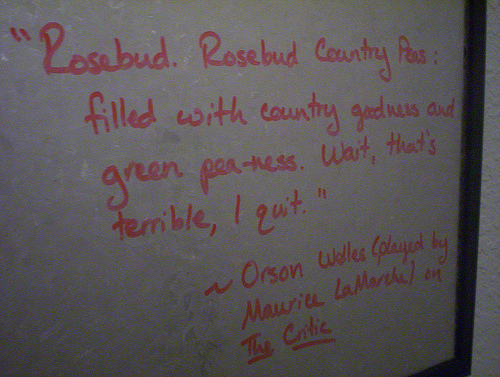 "Rosebud. Rosebud Country Peas:
filled with country goodness and
green pea-ness. Wait, that's
terrible, I quit."
~ Orson Welles (played by
Maurice LaMarche) on
The Critic